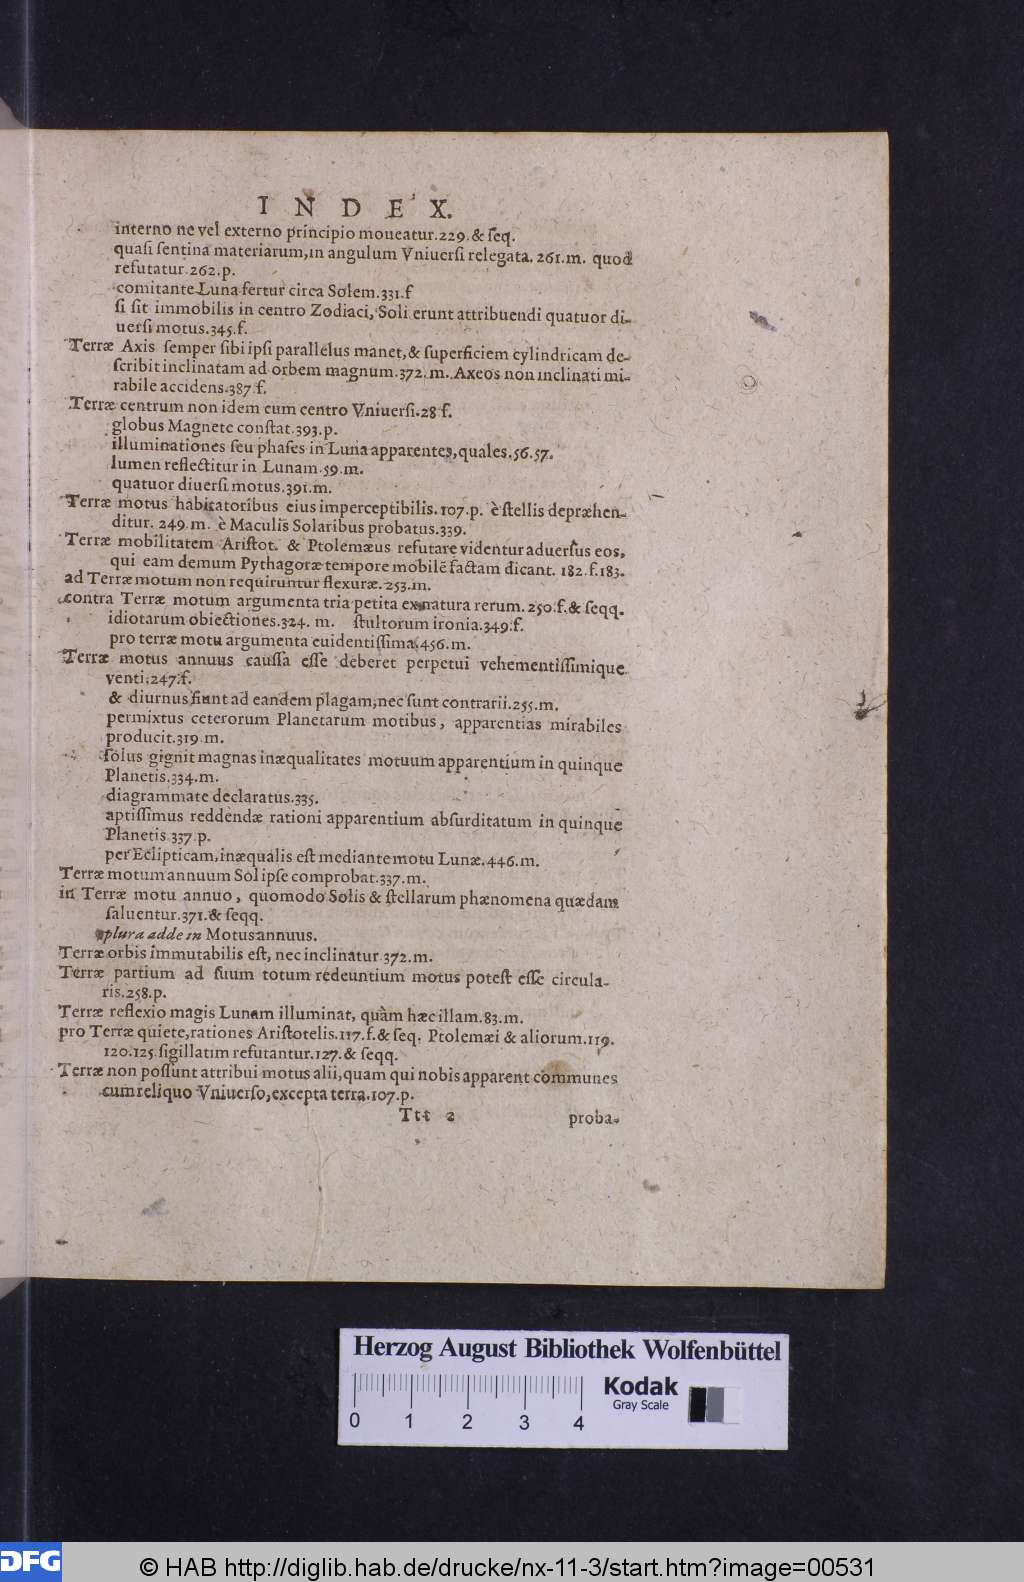 INDEX.
interno ne vel externo principio moueatur.229.& ſeq.
quaſi ſentina materiarum,in angulum Vniuerſi relegata. 261.m. quod
refutatur.262.p.
comitante Luna fertur circa Solem.331.f
ſi ſit immobilis in centro Zodiaci, Soli erunt attribuendi quatuor di-
uerſi motus.345.f.
Terræ Axis ſemper ſibi ipſi parallelus manet,& ſuperficiem cylindricam de-
ſcribit inclinatam ad orbem magnum.372.m. Axeos non inclinati mi-
rabile accidens.387.f.
Terræ centrum non idem cum centro Vniuerſi.28 f.
globus Magnete conſtat.393.p.
illuminationes ſeu phaſes in Luna apparentes,quales.56.57.
lumen reflectitur in Lunam.59.m.
quatuor diuerſi motus.391.m.
Terræ motus habitatoribus eius imperceptibilis.107.p. è ſtellis depræhen-
ditur. 249.m. è Maculis Solaribus probatus.339.
Terræ mobilitatem Ariſtot. & Ptolemæus refutare videntur aduerſus eos,
qui eam demum Pythagoræ tempore mobilē factam dicant. 182.f.183.
ad Terræ motum non requiruntur flexuræ.253.m.
contra Terræ motum argumenta tria petita ex natura rerum. 250.f.& ſeqq.
idiotarum obiectiones.324. m. ſtultorum ironia.349.f.
pro terræ motu argumenta euidentiſſima.456.m.
Terræ motus annuus cauſſa eſſe deberet perpetui vehementiſſimique
venti.247.f.
& diurnus fiunt ad eandem plagam,nec ſunt contrarii.255.m.
permixtus ceterorum Planetarum motibus, apparentias mirabiles
producit.319.m.
ſolus gignit magnas inæqualitates motuum apparentium in quinque
Planetis.334.m.
diagrammate declaratus.335.
aptiſſimus reddendæ rationi apparentium abſurditatum in quinque
Planetis 337.p.
per Eclipticam,inæqualis eſt mediante motu Lunæ.446.m.
Terræ motum annuum Sol ipſe comprobat.337.m.
in Terræ motu annuo, quomodo Solis & ſtellarum phænomena quædam
ſaluentur.371.& ſeqq.
plura adde in Motus annuus.
Terræ orbis immutabilis eſt, nec inclinatur.372.m.
Terræ partium ad ſuum totum redeuntium motus poteſt eſſe circula-
ris.258.p.
Terræ reflexio magis Lunam illuminat, quàm hæc illam.83.m.
pro Terræ quiete,rationes Ariſtotelis.117.f.& ſeq. Ptolemæi & aliorum.119.
120.125.ſigillatim refutantur.127.& ſeqq.
Terræ non poſſunt attribui motus alii,quam qui nobis apparent communes
cum reliquo Vniuerſo,excepta terra.107.p.
Ttt 2 proba-
Herzog August Bibliothek Wolfenbüttel
0 1 2 3 4
Kodak
Gray Scale
DFG
© HAB http://diglib.hab.de/drucke/nx-11-3/start.htm?image=00531